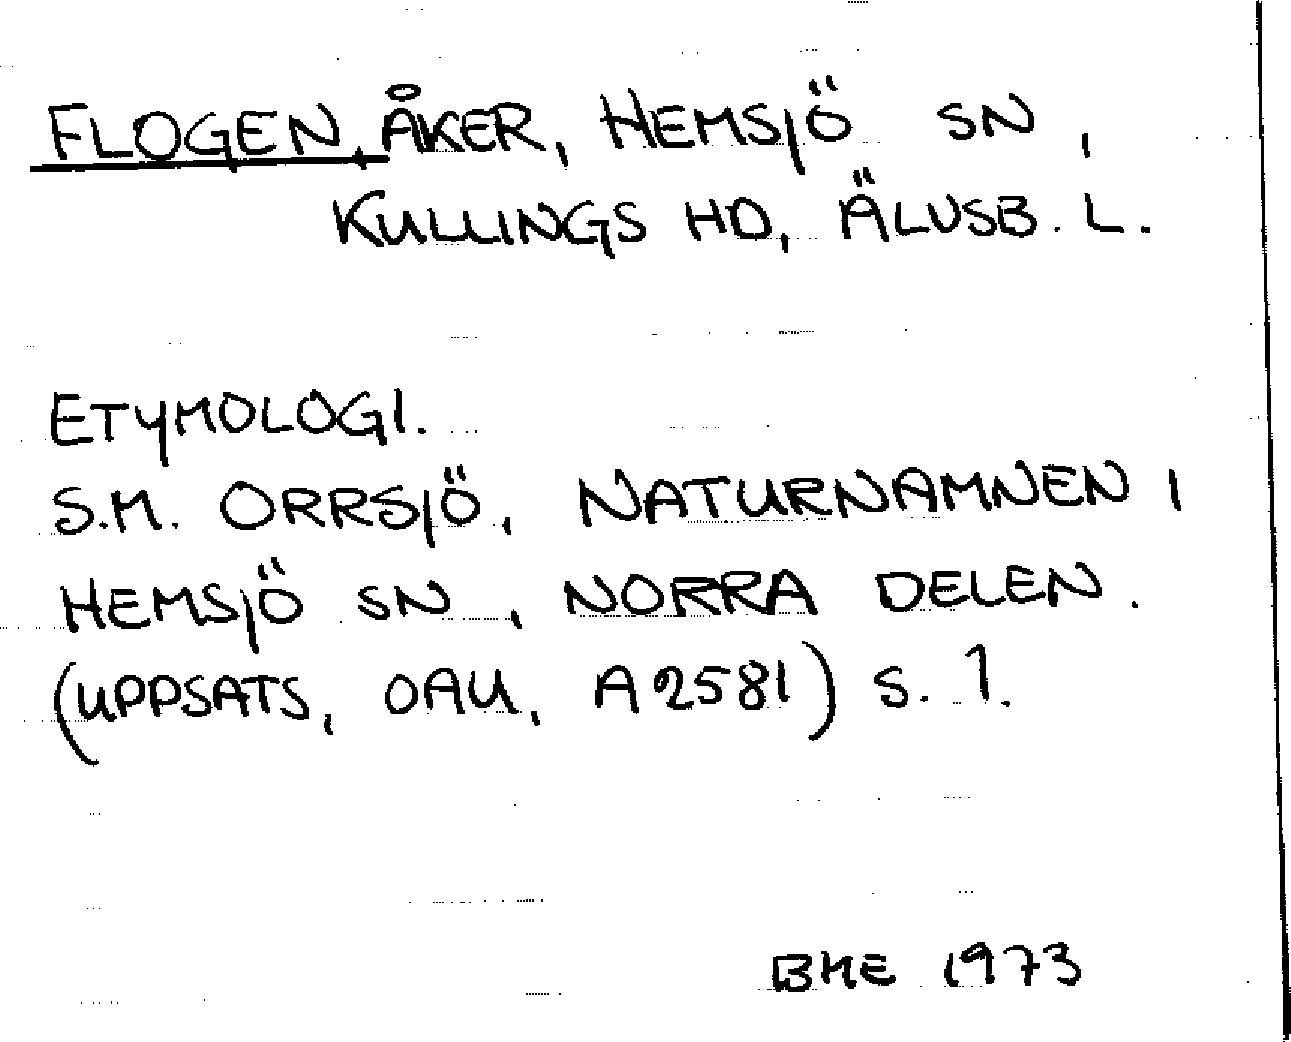 FLOGEN, ÅKER, HEMSJÖ SN,
KULLINGS HD, ÄLVSB. L.
ETYMOLOGI.
S.M. ORRSJÖ, NATURNAMNEN I
HEMSJÖ SN, NORRA DELEN.
(UPPSATS, OAU, A 2581) S. 1.
BME 1973